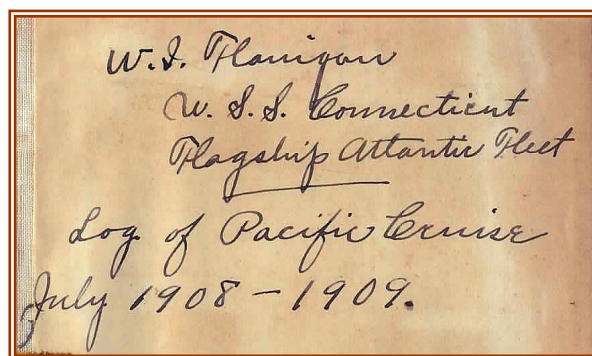 W. I. Flanigan
U. S. S. Connecticut
Flagship Atlantic Fleet
Log of Pacific Cruise
July 1908 - 1909.